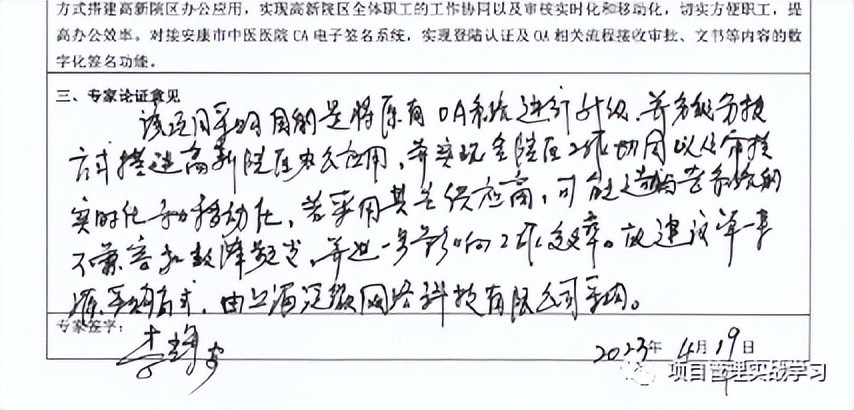 方式搭建高新院区办公应用，实现高新院区全体职工的工作协同以及审核实时化和移动化，切实方便职工，提
高办公效率。对接安康市中医医院 CA 电子签名系统，实现登陆认证及 OA 相关流程接收审批、文书等内容的数
字化签名功能。
三、专家论证意见
该项目采购目的是将原有OA系统进行升级，并多级分授
方式搭建高新院区办公应用，并实现全院区工作协同以及审核
实时化和移动化，若采用其它供应商，可能造成与老系统的
不兼容和故障频发，并进一步影响工作效率。故建议单一来
源采购方式，由上海泛微网络科技有限公司采购。
专家签字：
2023年 4月 19日
项目管理实战学习